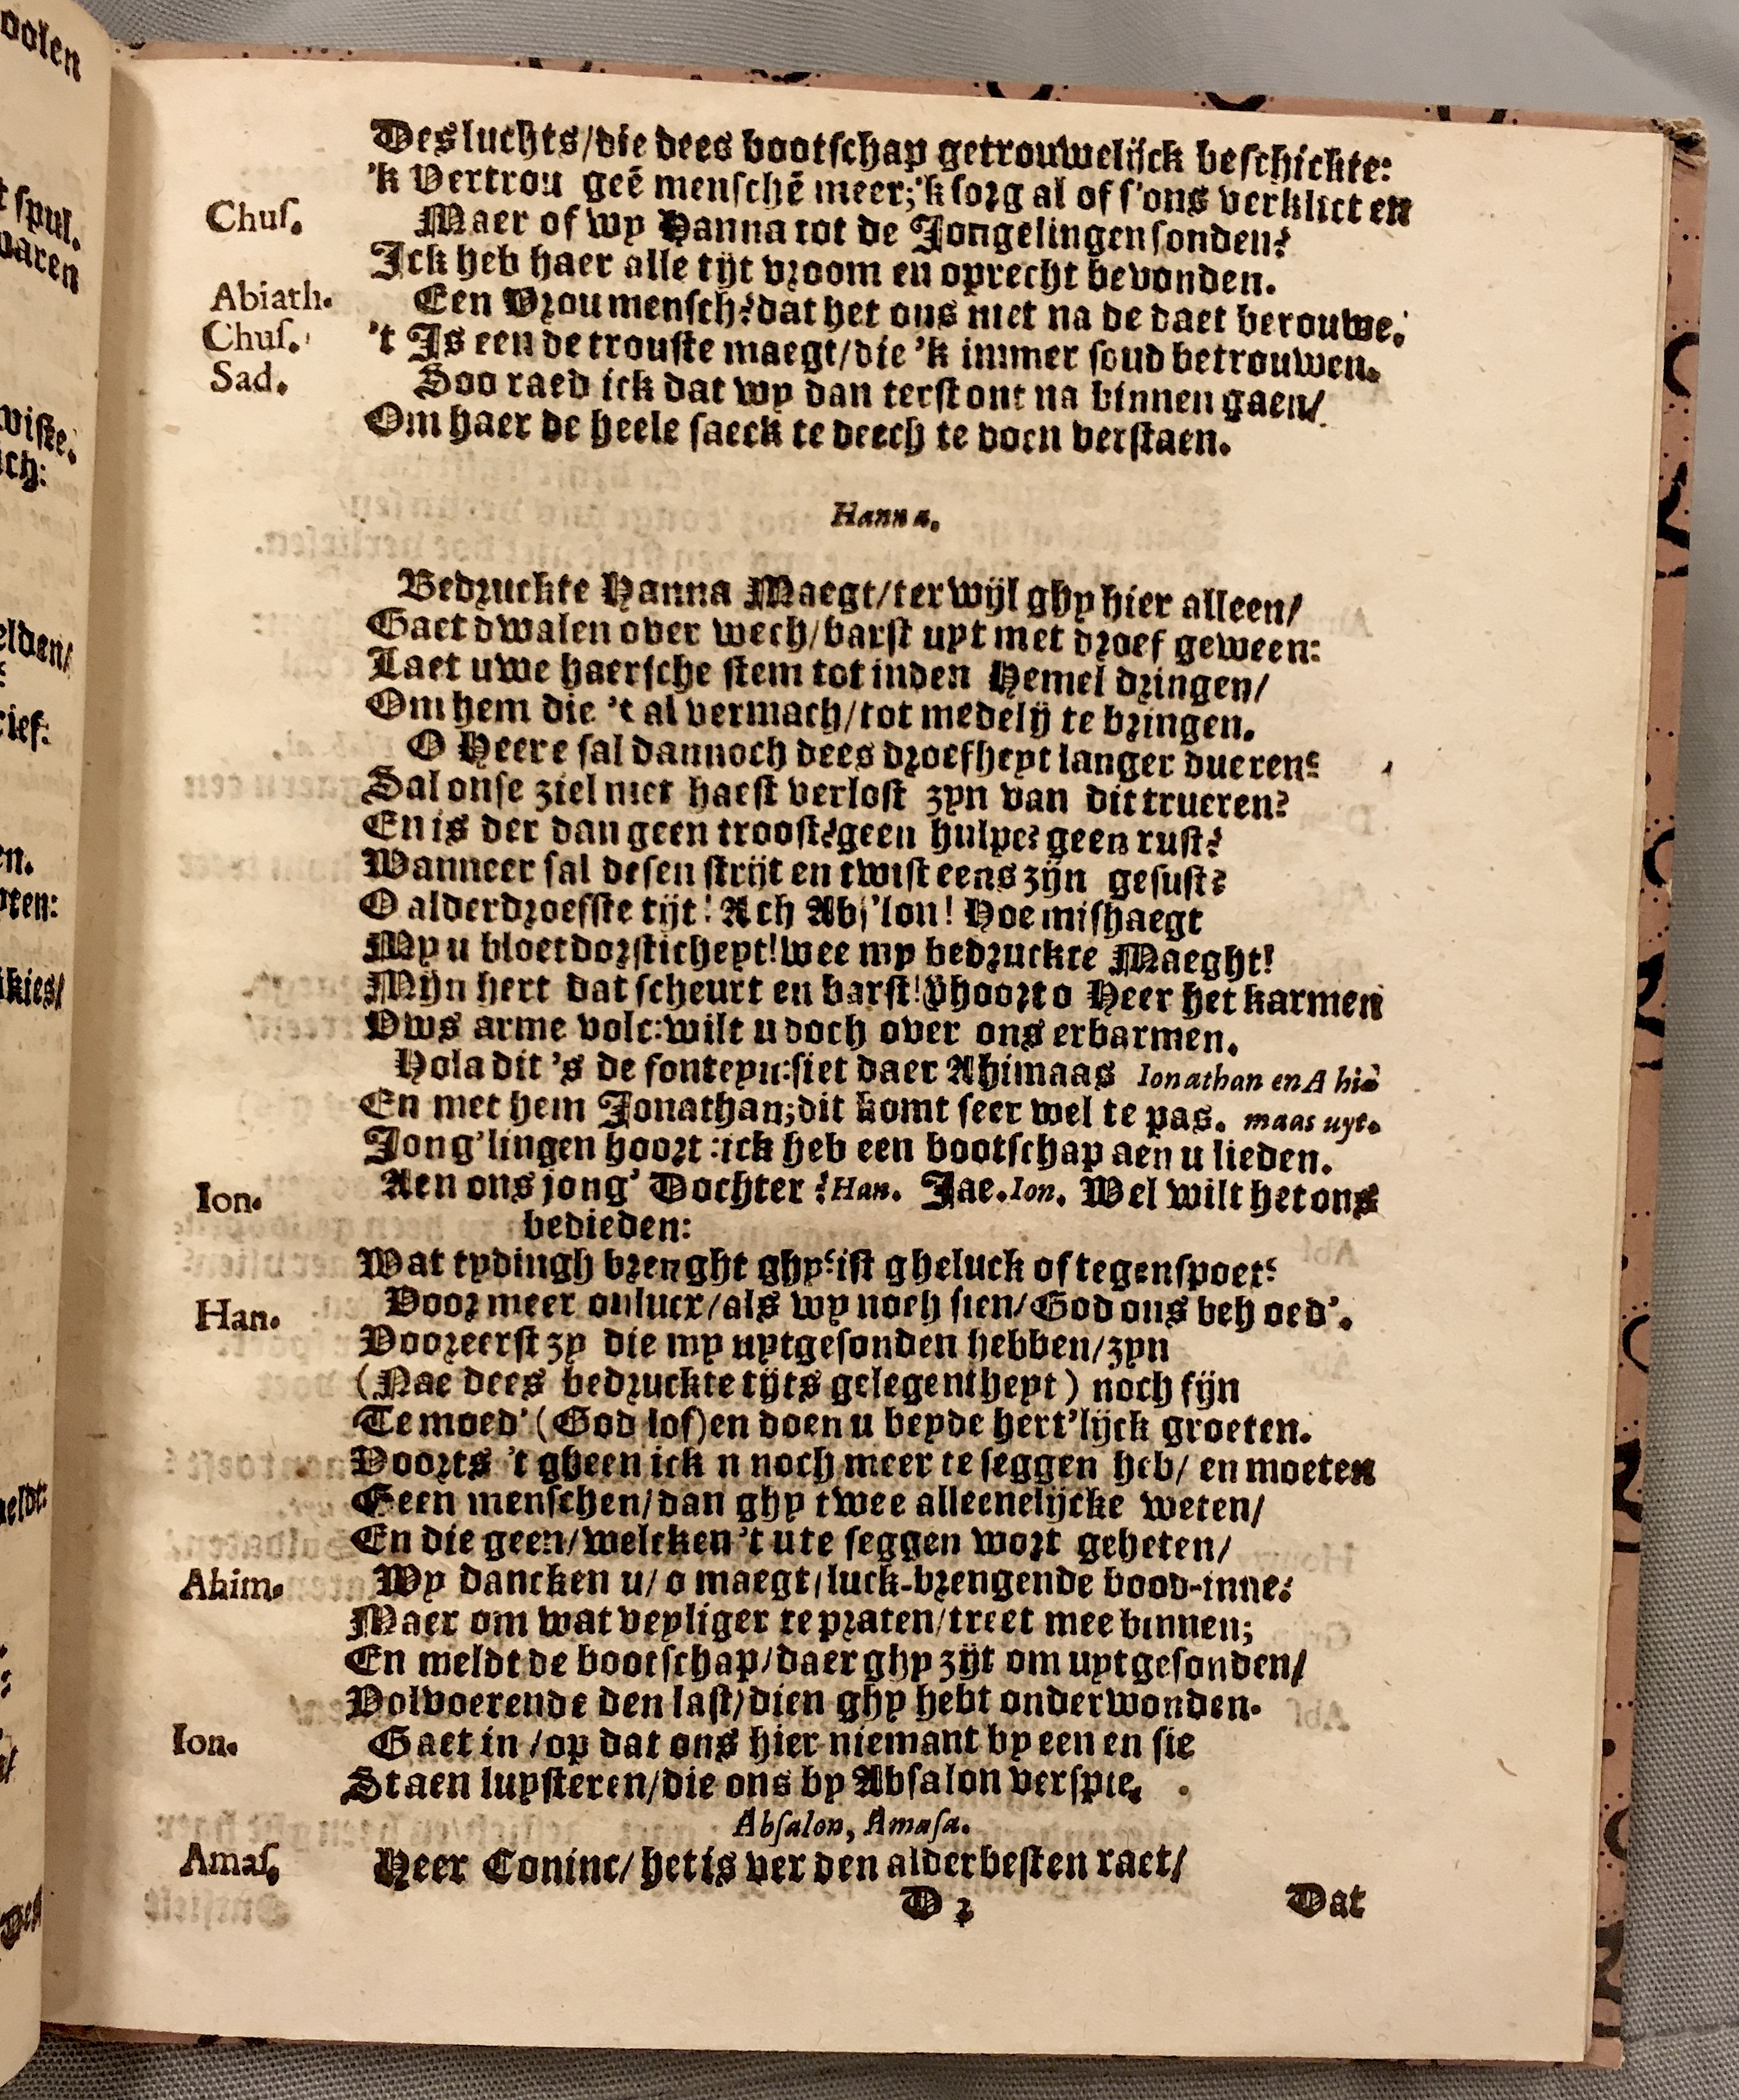 Des luchts/die dees bootschap getrouwelijck beschickte:
'k Vertrou geē menschē meer;'k sorg al of s'ons verklicten
Chus. Maer of wy Hanna tot de Jongelingen sonden?
Ick heb haer alle tijt vroom en oprecht bevonden.
Abiath. Een Vrou mensch?dat het ons niet na de daet berouwe.
Chus. 't Is een de trouste maegt/die 'k immer soud betrouwen.
Sad. Soo raed ick dat wy dan terstont na binnen gaen/
Om haer de heele saeck te deech te doen verstaen.
Hanna.
Bedruckte Hanna Maegt/terwijl ghy hier alleen/
Gaet dwalen over wech/barst uyt met droef geween:
Laet uwe haersche stem tot inden Hemel dringen/
Om hem die 't al vermach/tot medelij te bringen.
O Heere sal dannoch dees droefheyt langer dueren?
Sal onse ziel niet haest verlost zyn van dit trueren?
En is der dan geen troost?geen hulpe?geen rust?
Wanneer sal desen strijt en twist eens zijn gesust?
O alderdroefste tijt! Ach Abs'lon! Hoe mishaegt
My u bloetdorsticheyt!wee my bedruckte Maeght!
Mijn hert dat scheurt en barst!Vhoort o Heer het karmen
Vws arme volc:wilt u doch over ons erbarmen.
Hola dit 's de fonteyn:siet daer Ahimaas Ionathan en Ahi-
En met hem Jonathan;dit komt seer wel te pas. maas uyt.
Jong'lingen hoort:ick heb een bootschap aen u lieden.
Ion. Aen ons jong' Dochter?Han. Jae.Ion. Wel wilt het ons
bedieden:
Wat tydingh brenght ghy?ist gheluck of tegenspoet?
Han. Voor meer onlucx/als wy noch sien/God ons behoed'.
Voor eerst zy die my uytgesonden hebben/zyn
(Nae dees bedruckte tijts gelegentheyt) noch fijn
Te moed'(God lof)en doen u beyde hert'lijck groeten.
Voorts 't gheen ick n noch meer te seggen heb/ en moeten
Geen menschen/dan ghy twee alleenelijcke weten/
En die geen/welcken't u te seggen wort geheten/
Ahim. Wy dancken u/o maegt/luck-brengende bood-inne:
Maer om wat veyliger te praten/treet mee binnen;
En meldt de bootschap/daer ghy zijt om uytgesonden/
Volvoerende den last/dien ghy hebt onderwonden.
Ion. Gaet in/op dat ons hier niemant by een en sie
Staen luysteren/die ons by Absalon verspie.
Absalon, Amasa.
Amas. Heer Coninc/het is ver den alderbesten raet/
D 2 Dat